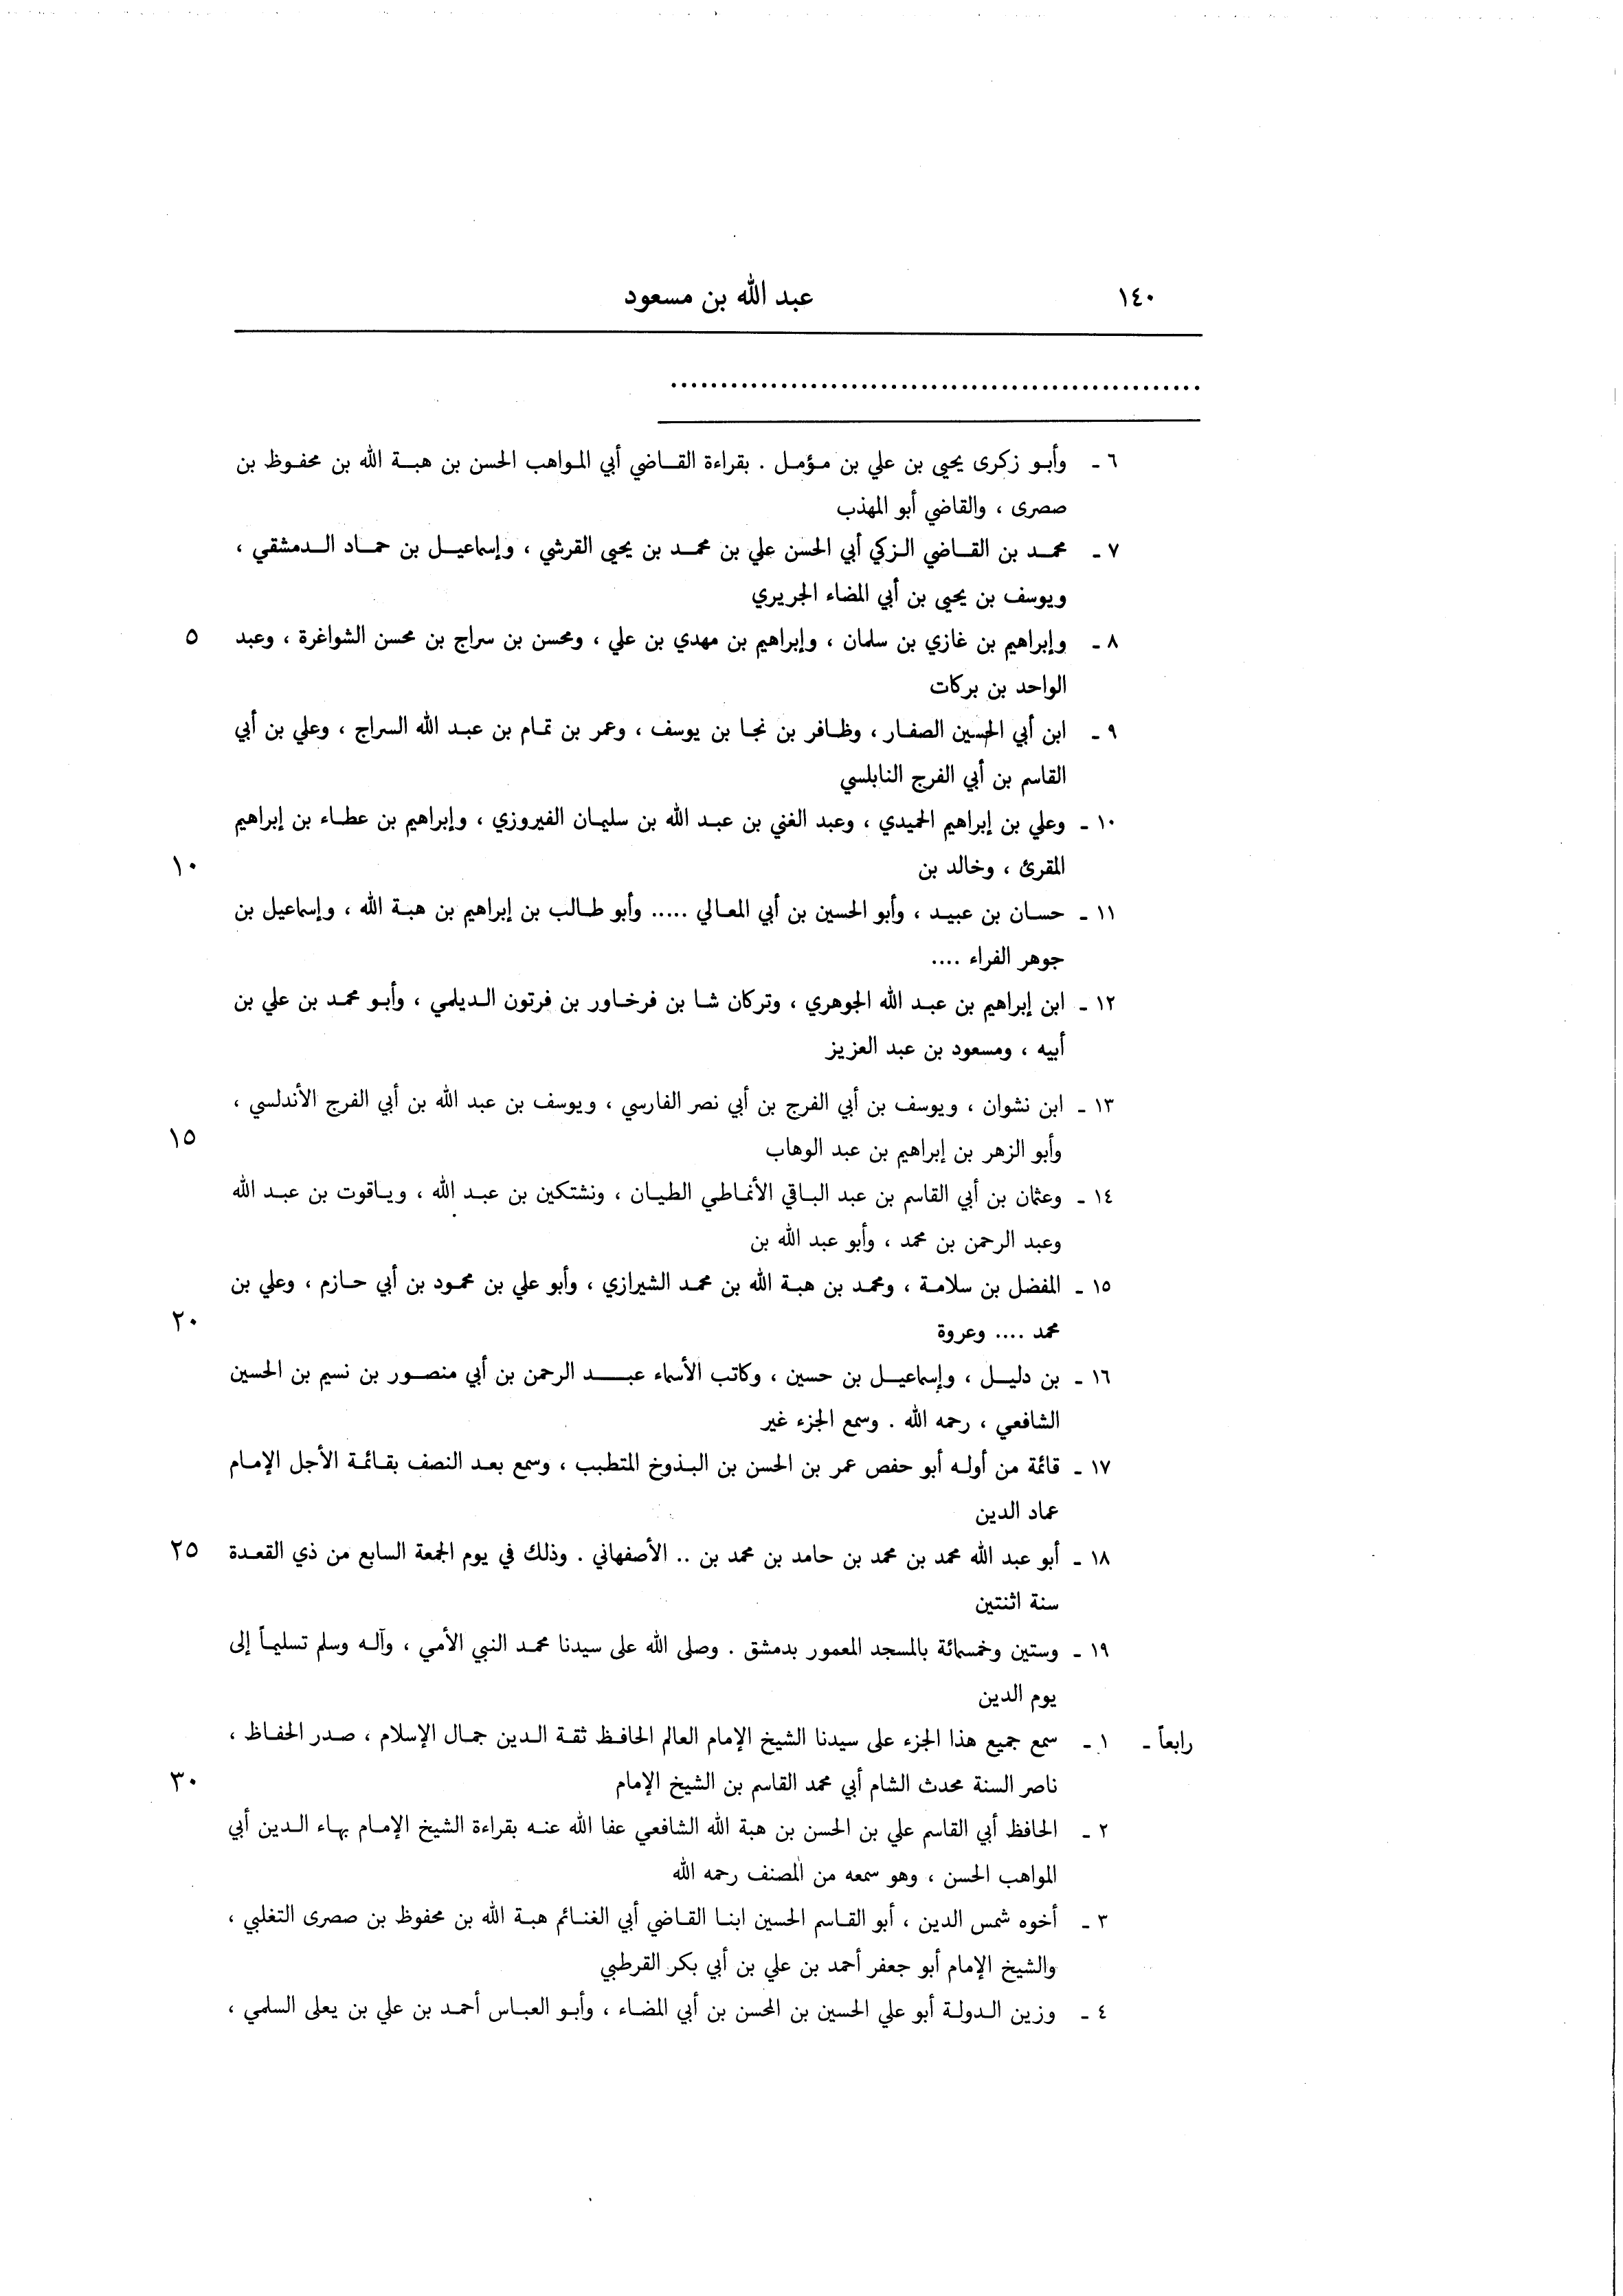 ١٤٠ عبد الله بن مسعود
......................................................
٦ ـ وأبو زكرى يحيى بن علي بن مؤمل . بقراءة القاضي أبي المواهب الحسن بن هبة الله بن محفوظ بن
صصرى ، والقاضي أبو المهذب
٧ ـ محمد بن القاضي الزكي أبي الحسن علي بن محمد بن يحيى القرشي ، وإسماعيل بن حماد الدمشقي ،
ويوسف بن يحيى بن أبي المضاء الجريري
٨ ـ وإبراهيم بن غازي بن سلمان ، وإبراهيم بن مهدي بن علي ، ومحسن بن سراج بن محسن الشواغرة ، وعبد ٥
الواحد بن بركات
٩ ـ ابن أبي الحسين الصفار ، وظافر بن نجا بن يوسف ، وعمر بن تمام بن عبد الله السراج ، وعلي بن أبي
القاسم بن أبي الفرج النابلسي
١٠ ـ وعلي بن إبراهيم الحميدي ، وعبد الغني بن عبد الله بن سليمان الفيروزي ، وإبراهيم بن عطاء بن إبراهيم
المقرئ ، وخالد بن ١٠
١١ ـ حسان بن عبيد ، وأبو الحسين بن أبي المعالي ..... وأبو طالب بن إبراهيم بن هبة الله ، وإسماعيل بن
جوهر الفراء ....
١٢ ـ ابن إبراهيم بن عبد الله الجوهري ، وتركان شا بن فرخاور بن فرتون الديلمي ، وأبو محمد بن علي بن
أبيه ، ومسعود بن عبد العزيز
١٣ ـ ابن نشوان ، ويوسف بن أبي الفرج بن أبي نصر الفارسي ، ويوسف بن عبد الله بن أبي الفرج الأندلسي ،
وأبو الزهر بن إبراهيم بن عبد الوهاب ١٥
١٤ ـ وعثمان بن أبي القاسم بن عبد الباقي الأنماطي الطيان ، ونشتكين بن عبد الله ، وياقوت بن عبد الله
وعبد الرحمن بن محمد ، وأبو عبد الله بن
١٥ ـ المفضل بن سلامة ، ومحمد بن هبة الله بن محمد الشيرازي ، وأبو علي بن محمود بن أبي حازم ، وعلي بن
محمد .... وعروة ٢٠
١٦ ـ بن دليل ، وإسماعيل بن حسين ، وكاتب الأسماء عبد الرحمن بن أبي منصور بن نسيم بن الحسين
الشافعي ، رحمه الله . وسمع الجزء غير
١٧ ـ قائمة من أوله أبو حفص عمر بن الحسن بن البذوخ المتطبب ، وسمع بعد النصف بقائمة الأجل الإمام
عماد الدين
١٨ ـ أبو عبد الله محمد بن محمد بن حامد بن محمد بن .. الأصفهاني . وذلك في يوم الجمعة السابع من ذي القعدة ٢٥
سنة اثنتين
١٩ ـ وستين وخمسمائة بالمسجد المعمور بدمشق . وصلى الله على سيدنا محمد النبي الأمي ، وآله وسلم تسليماً إلى
يوم الدين
رابعاً ـ ١ ـ سمع جميع هذا الجزء على سيدنا الشيخ الإمام العالم الحافظ ثقة الدين جمال الإسلام ، صدر الحفاظ ،
ناصر السنة محدث الشام أبي محمد القاسم بن الشيخ الإمام ٣٠
٢ ـ الحافظ أبي القاسم علي بن الحسن بن هبة الله الشافعي عفا الله عنه بقراءة الشيخ الإمام بهاء الدين أبي
المواهب الحسن ، وهو سمعه من المصنف رحمه الله
٣ ـ أخوه شمس الدين ، أبو القاسم الحسين ابنا القاضي أبي الغنائم هبة الله بن محفوظ بن صصرى التغلبي ،
والشيخ الإمام أبو جعفر أحمد بن علي بن أبي بكر القرطبي
٤ ـ وزين الدولة أبو علي الحسين بن المحسن بن أبي المضاء ، وأبو العباس أحمد بن علي بن يعلى السلمي ،